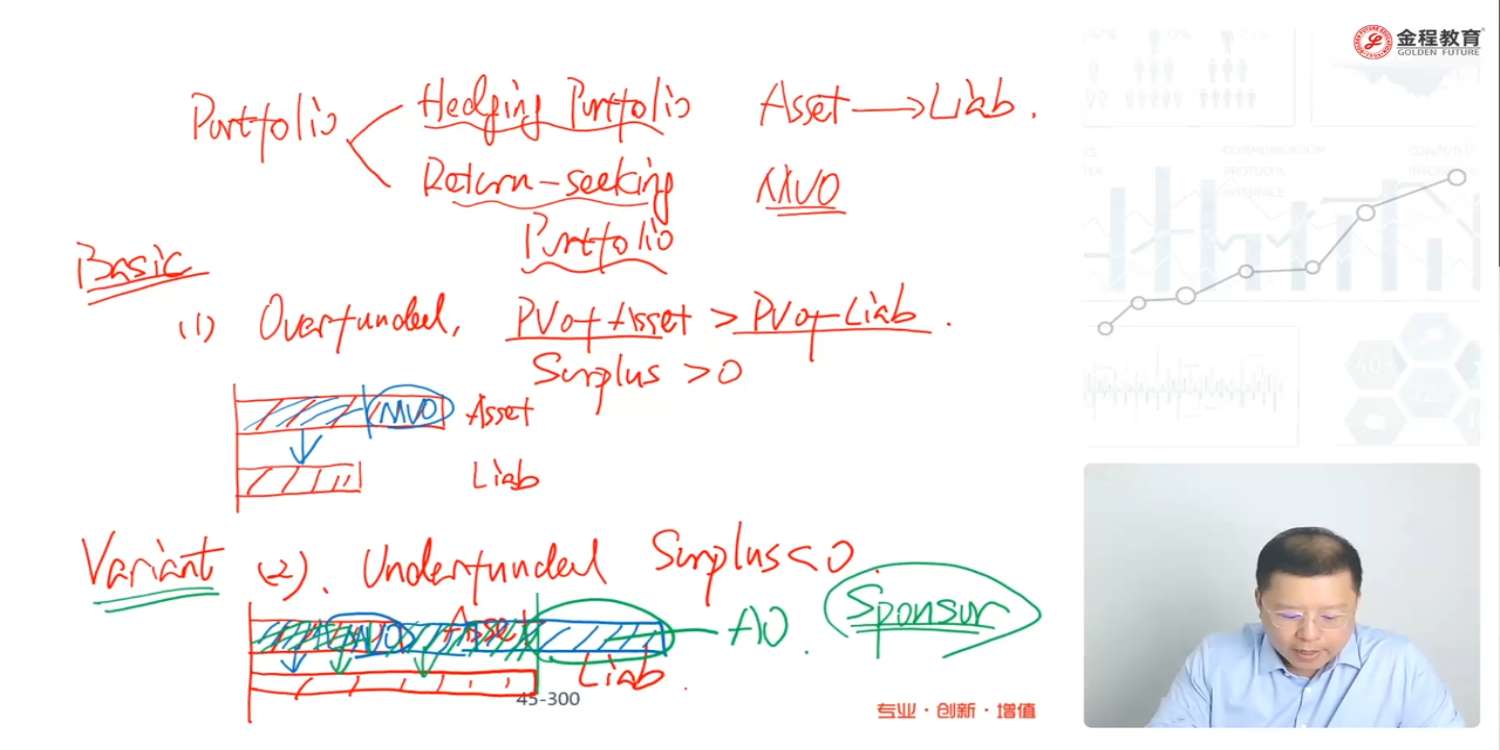 金程教育
GOLDEN FUTURE
Portfolio
Hedging Portfolio Asset → Liab.
Return-seeking Portfolio MVO
Basic
(1) Overfunded, PV of Asset > PV of Liab.
Surplus > 0
MVO Asset
Liab
Variant (2). Underfunded Surplus < 0
MVO Asset AO. Sponsor
Liab.
45-300
专业·创新·增值